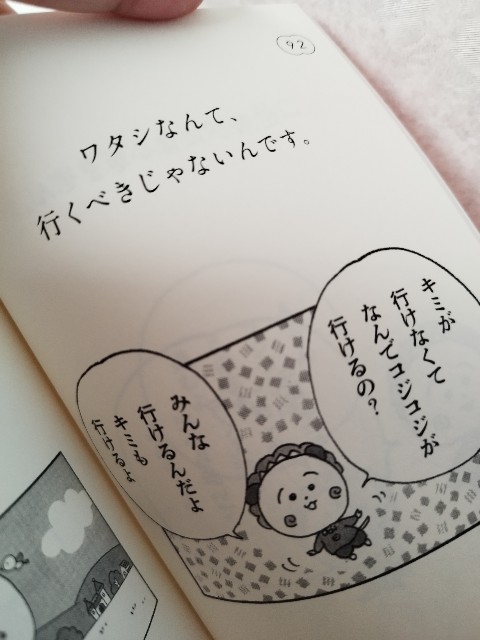 92
ワタシなんて、
行くべきじゃないんです。
キミが
行けなくて
なんでコジコジが
行けるの?
みんな
行けるんだよ
キミも
行けるよ